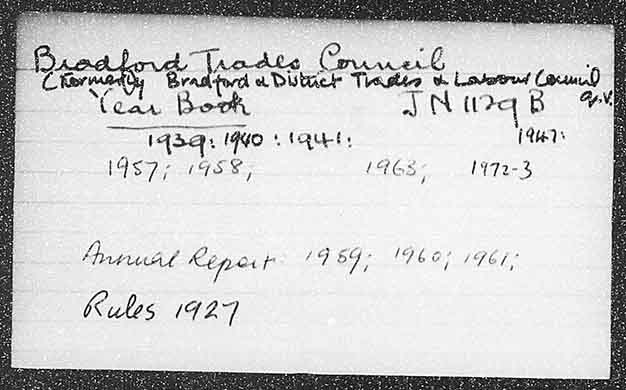 Bradford Trades Council
(Formerly Bradford & District Trades & Labour Council q.v.
Year Book JN 1129 B
1939: 1940: 1941: 1947:
1957; 1958; 1963; 1972-3
Annual Report 1959; 1960; 1961;
Rules 1927